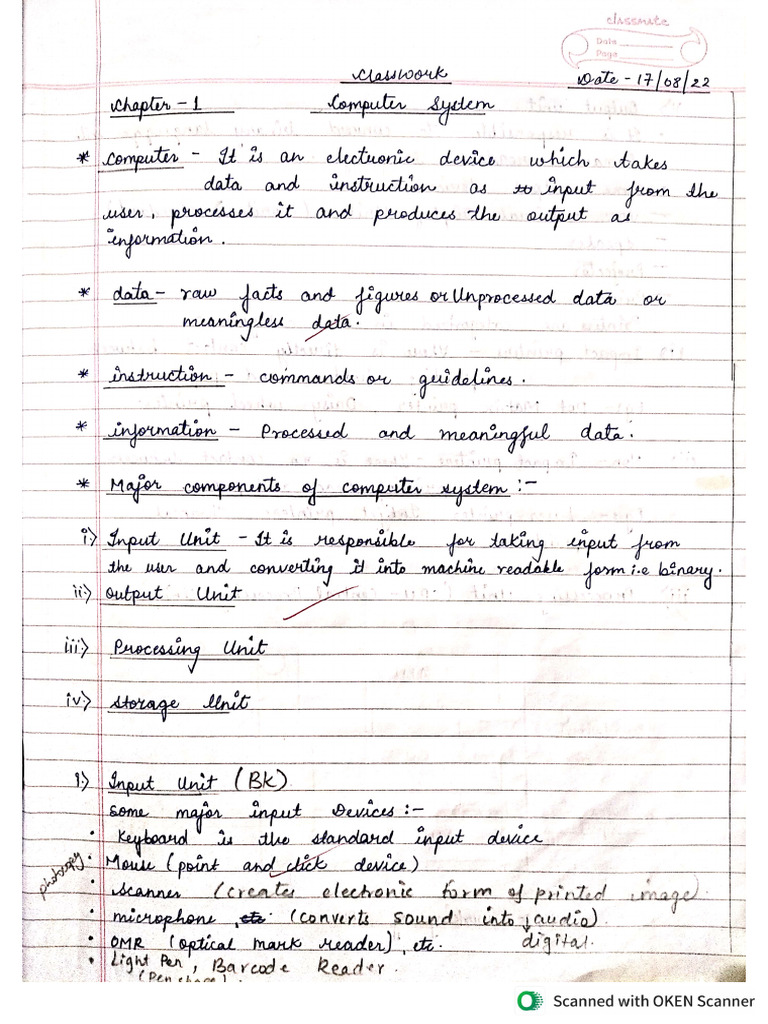 classmate
Date
Page
Classwork
Date - 17/08/22
Chapter - 1 Computer System
* Computer - It is an electronic device which takes
data and instruction as input from the
user, processes it and produces the output as
information.
* data - raw facts and figures or Unprocessed data or
meaningless data.
* instruction - commands or guidelines.
* information - Processed and meaningful data.
* Major components of computer system :-
i) Input Unit - It is responsible for taking input from
the user and converting it into machine readable form i.e binary.
ii) Output Unit
iii) Processing Unit
iv) Storage Unit
1) Input Unit (BK)
Some major input Devices :-
• Keyboard is the standard input device
• Mouse (point and click device)
photocopy
• Scanner (creates electronic form of printed image)
• microphone, etc. (converts sound into audio)
digital.
• OMR (optical mark reader), etc.
• Light Pen, Barcode Reader.
(Pen shape).
Scanned with OKEN Scanner